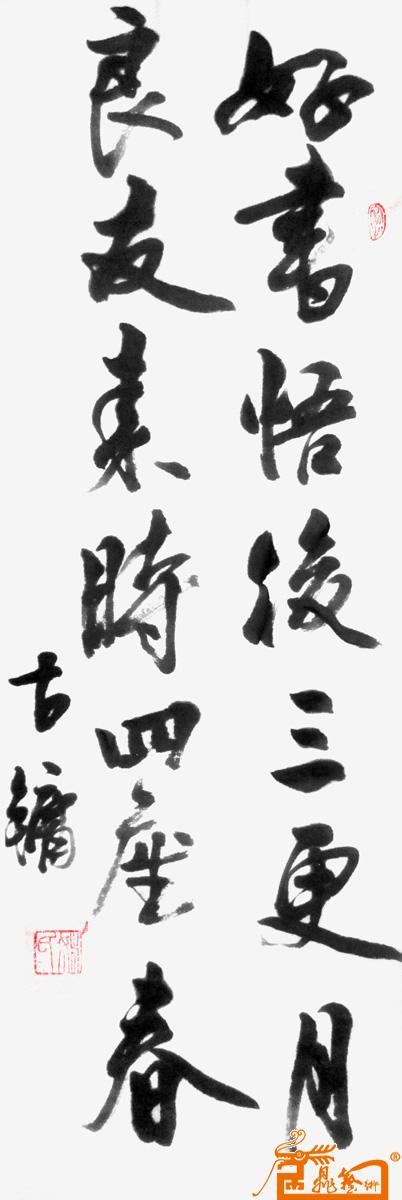 好書悟後三更月
良友来時四座春
古鏞